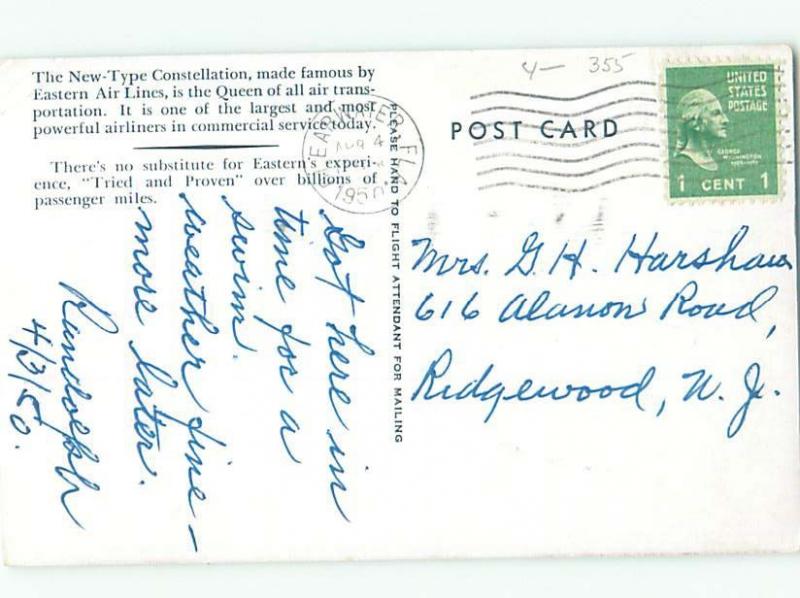 The New-Type Constellation, made famous by
Eastern Air Lines, is the Queen of all air trans-
portation. It is one of the largest and most
powerful airliners in commercial service today.
There's no substitute for Eastern's experi-
ence, "Tried and Proven" over billions of
passenger miles.
Got here in
time for a
swim.
weather fine -
more later.
Randolph
4/3/50.
PLEASE HAND TO FLIGHT ATTENDANT FOR MAILING
EARWATER, FLA
4
1950
4- 355
POST CARD
UNITED
STATES
POSTAGE
GEORGE
WASHINGTON
1 CENT 1
Mrs. G. H. Harshaw
616 Alanon Road,
Ridgewood, N. J.